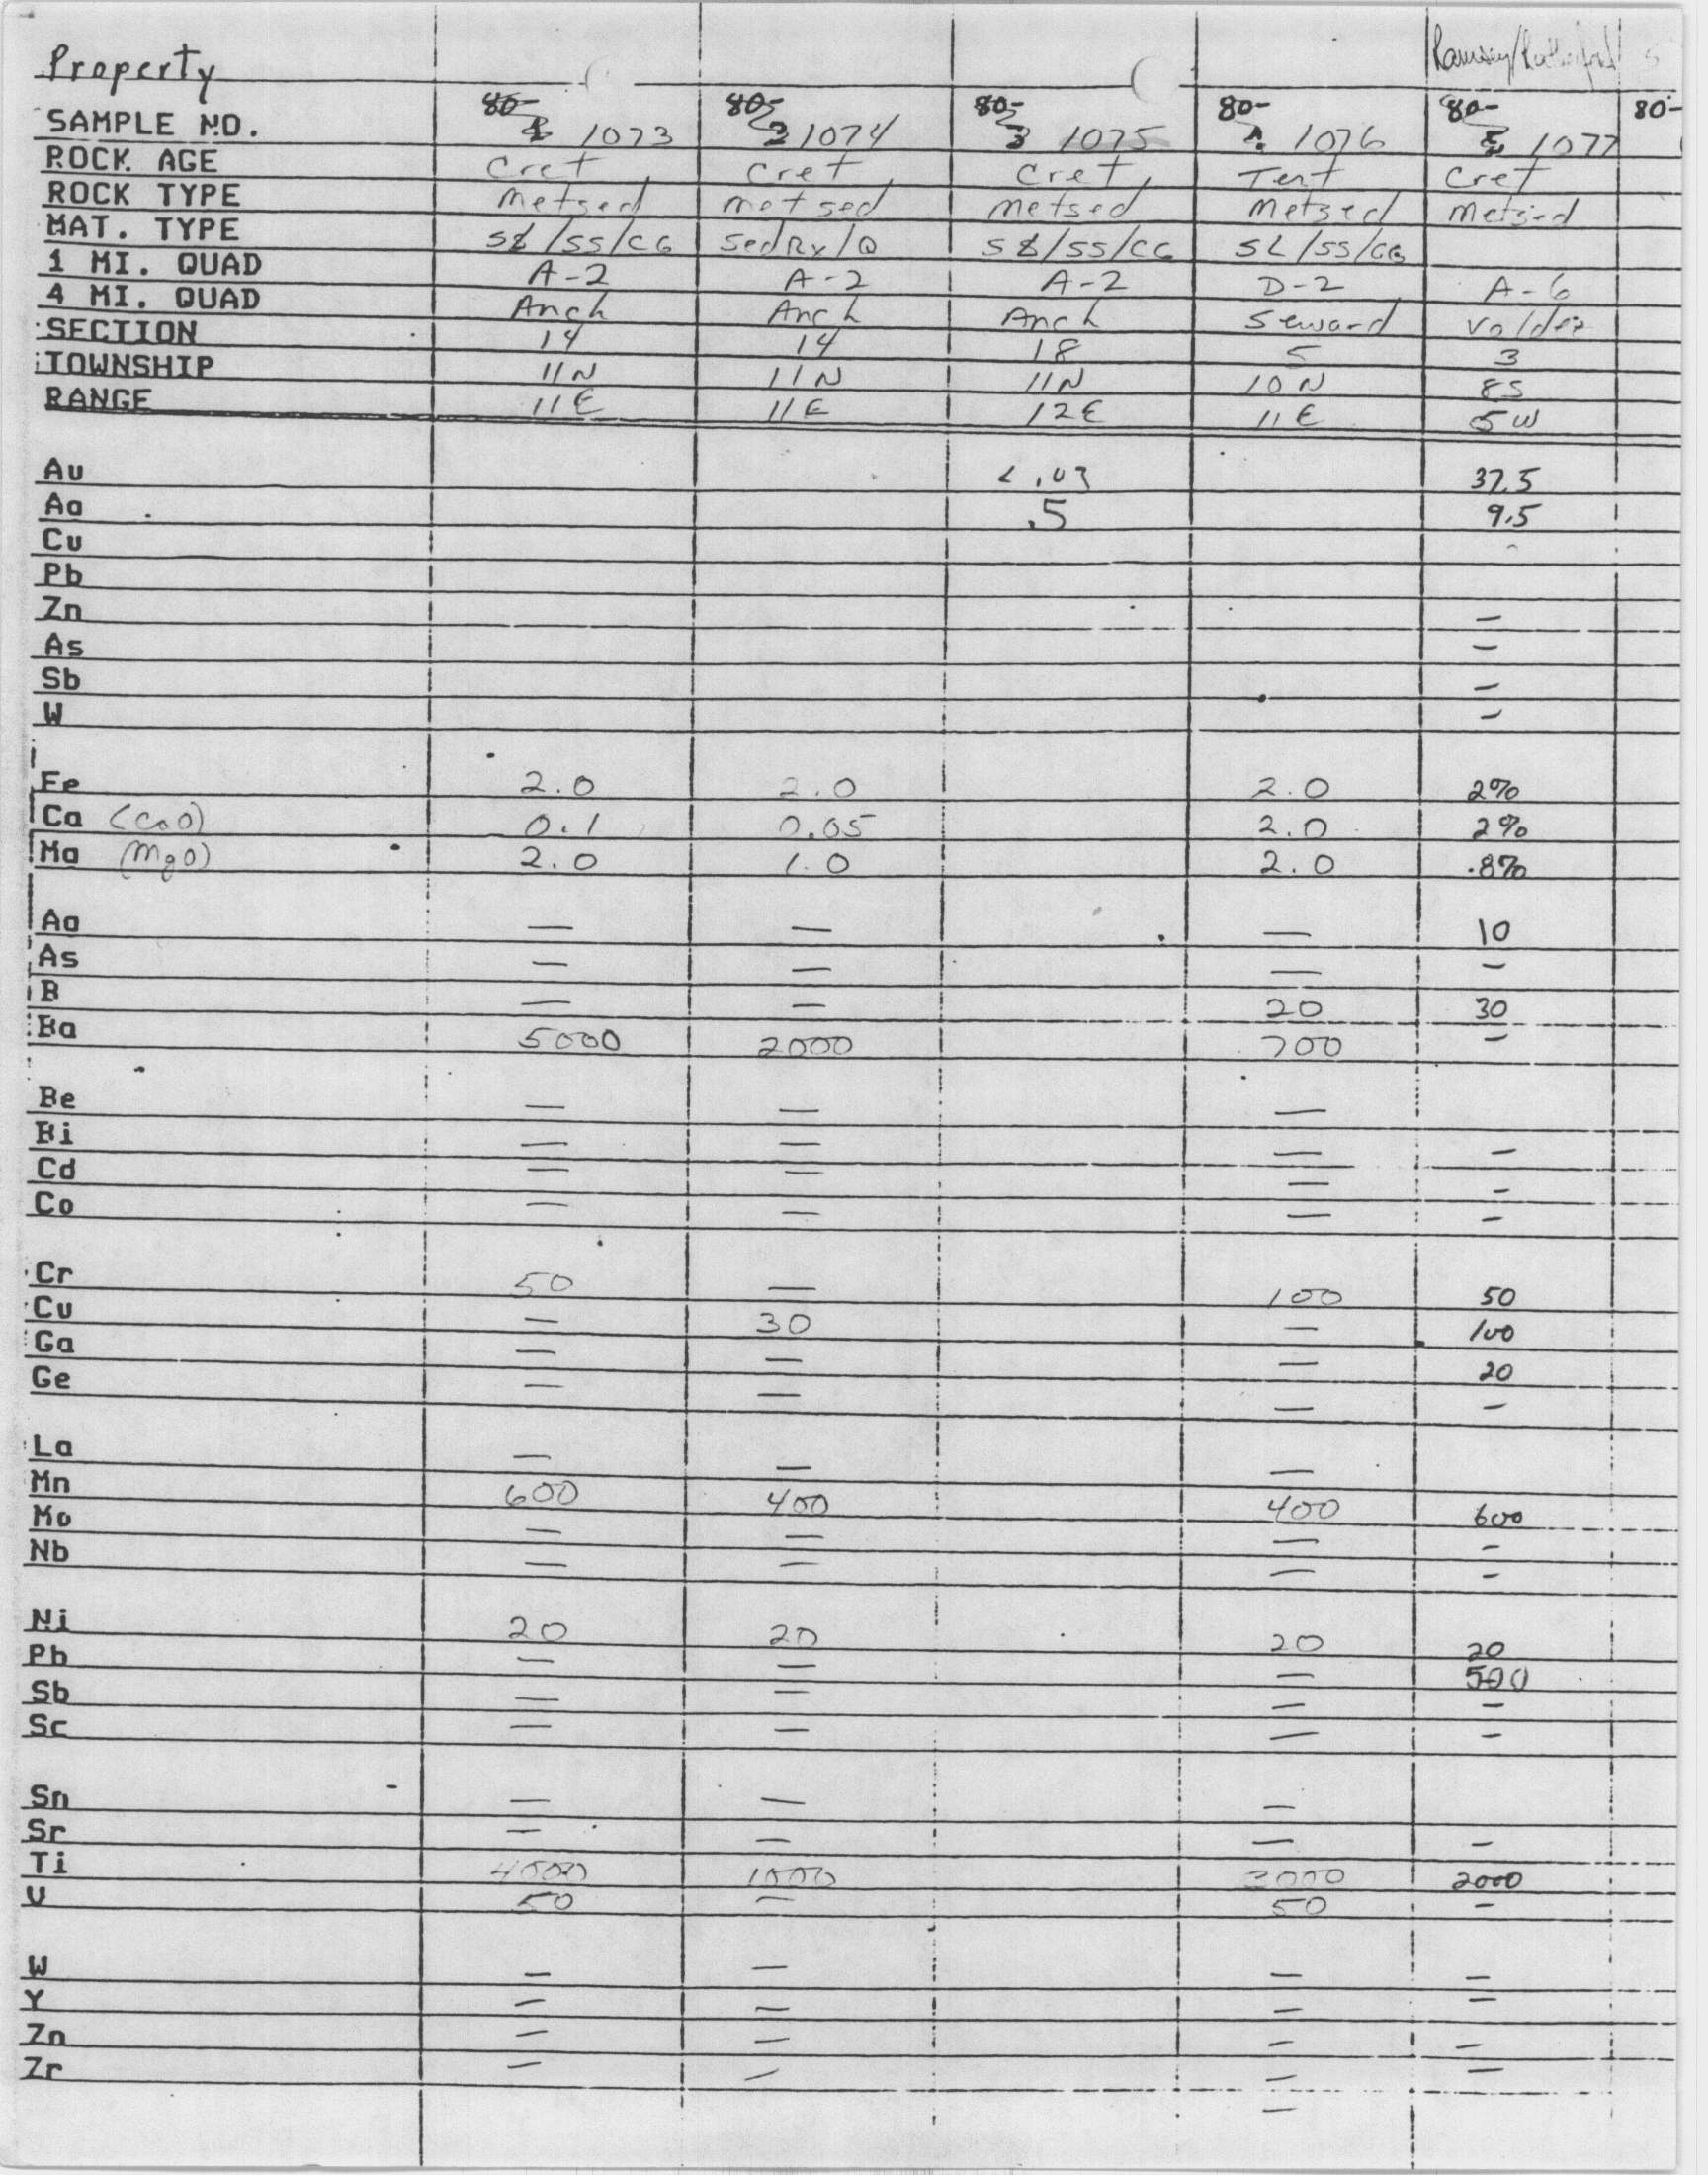 Property Ramsey/Rutherford
80- 80- 80- 80- 80- 80-
SAMPLE NO. 1073 1074 1075 1076 1077
ROCK AGE Cret Cret Cret Tert Cret
ROCK TYPE Metsed Metsed Metsed Metsed Metsed
MAT. TYPE SL/SS/CG SedRx/Q SL/SS/CG SL/SS/CG
1 MI. QUAD A-2 A-2 A-2 D-2 A-6
4 MI. QUAD Anch Anch Anch Seward Valdez
SECTION 14 14 18 5 3
TOWNSHIP 11N 11N 11N 10N 8S
RANGE 11E 11E 12E 11E 5W
Au <.03 37.5
Ag .5 9.5
Cu
Pb
Zn —
As —
Sb —
W —
Fe 2.0 2.0 2.0 2%
Ca (CaO) 0.1 0.05 2.0 2%
Mg (MgO) 2.0 1.0 2.0 .8%
Ag — — — 10
As — — — —
B — — 20 30
Ba 5000 2000 700 —
Be — — —
Bi — — — —
Cd — — — —
Co — — — —
Cr 50 — 100 50
Cu — 30 — 100
Ga — — — 20
Ge — — — —
La — — —
Mn 600 400 400 600
Mo — — — —
Nb — — — —
Ni 20 20 20 20
Pb — — — 500
Sb — — — —
Sc — — — —
Sn — — —
Sr — — — —
Ti 4000 1000 3000 2000
V 50 — 50 —
W — — — —
Y — — — —
Zn — — — —
Zr — — — —
—